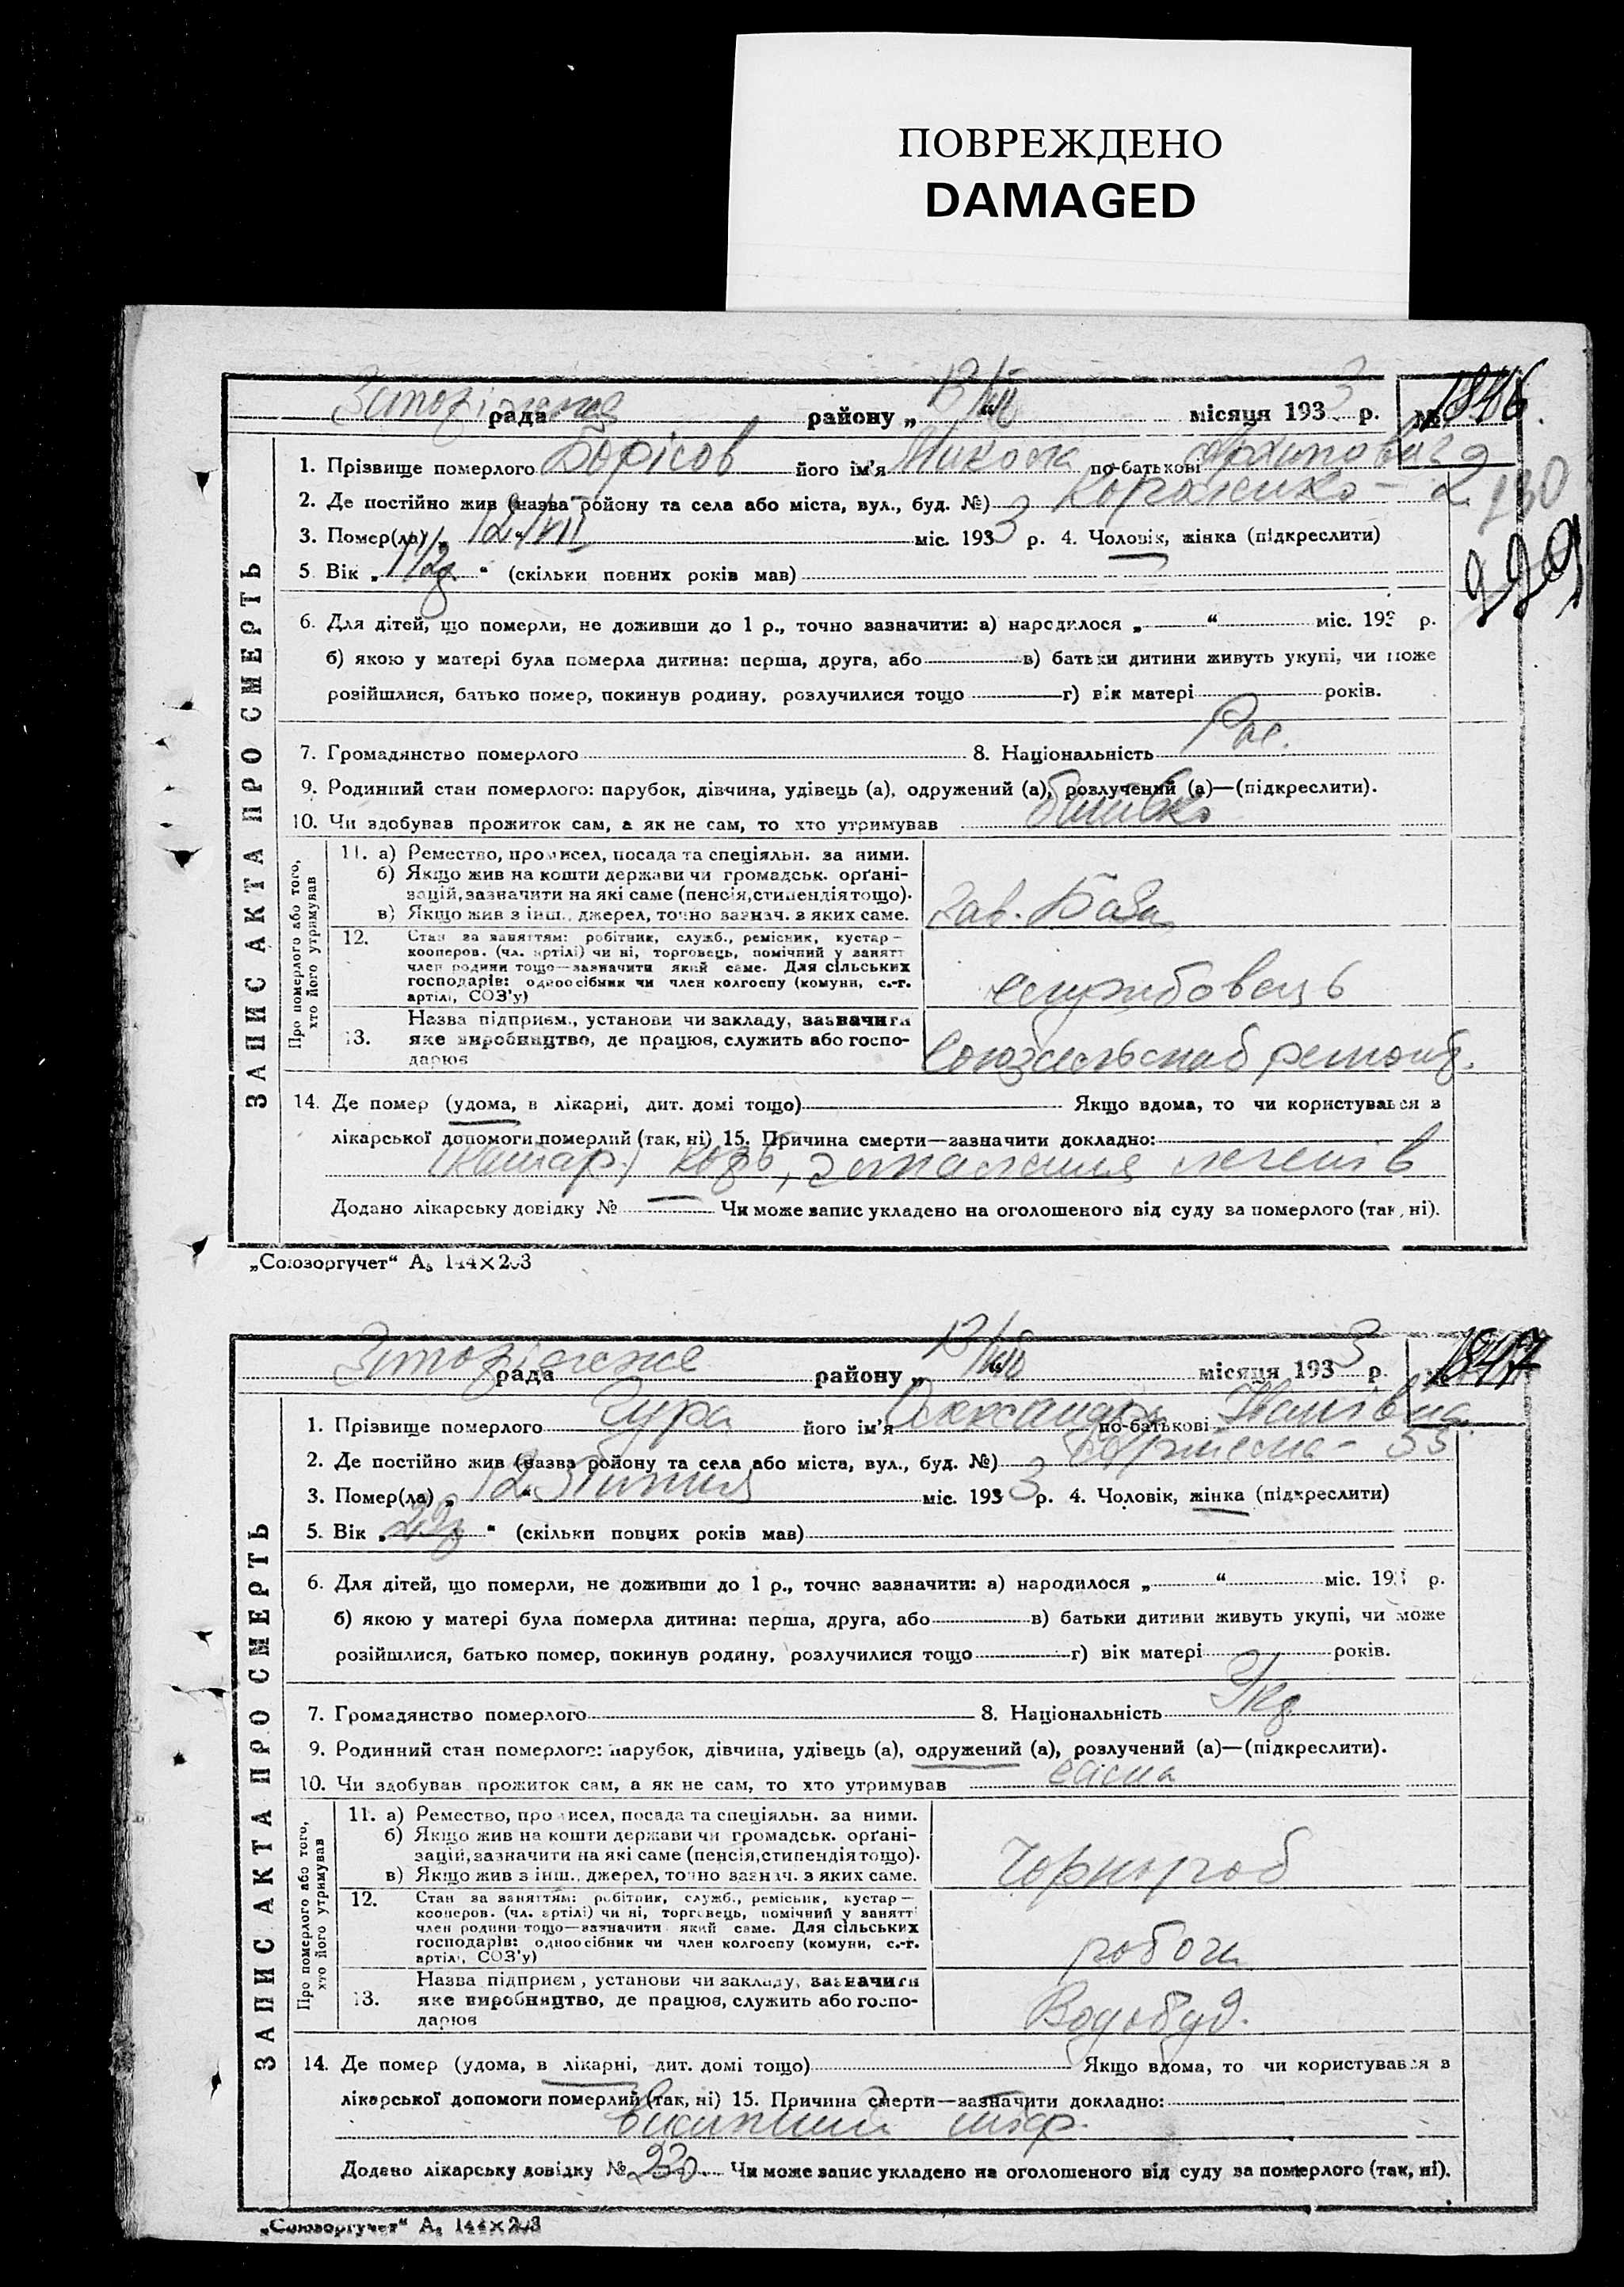 ПОВРЕЖДЕНО
DAMAGED
рада району „ 13/VII “ місяця 1933 р. № 1846
1. Прізвище померлого Борісов його ім’я Микола по-батькові
2. Де постійно жив (назва району та села або міста, вул., буд. №)
230
3. Помер(ла) „ 12/VII “ міс. 1933 р. 4. Чоловік, жінка (підкреслити)
229
5 Вік „ “ (скільки повних років мав)
6. Для дітей, що померли, не доживши до 1 р., точно зазначити: а) народилося „ “ міс. 193 р.
б) якою у матері була померла дитина: перша, друга, або в) батьки дитини живуть укупі, чи може
розійшлися, батько помер, покинув родину, розлучилися тощо г) вік матері років.
7. Громадянство померлого 8. Національність Рос.
9. Родинний стан померлого: парубок, дівчина, удівець (а), одружений (а), розлучений (а)—(підкреслити).
10. Чи здобував прожиток сам, а як не сам, то хто утримував батько
ЗАПИС АКТА ПРО СМЕРТЬ
Про померлого або того, хто його утримував
11. а) Ремество, промисел, посада та спеціяльн. за ними.
б) Якщо жив на кошти держави чи громадськ. орґані-
зацій, зазначити на які саме (пенсія, стипендія тощо).
в) Якщо жив з інш. джерел, точно зазнач. з яких саме.
зав. База
12. Стан за заняттям: робітник, служб., ремісник, кустар—
кооперов. (чл. артілі) чи ні, торговець, помічний у занятт
член родини тощо—зазначити який саме. Для сільських
господарів: одноосібник чи член колгоспу (комуни, с.-г.
артілі, СОЗ’у)
службовець
Назва підприєм., установи чи закладу, зазначити
13. яке виробництво, де працює, служить або госпо-
дарює
14. Де помер (удома, в лікарні, дит. домі тощо) Якщо вдома, то чи користувався з
лікарської допомоги померлий (так, ні) 15. Причина смерти—зазначити докладно:
кір, запалення легенів
Додано лікарську довідку № — Чи може запис укладено на оголошеного від суду за померлого (так, ні).
„Союзоргучет“ А₅ 144×203
рада району „ 13/VII “ місяця 1933 р. № 1847
1. Прізвище померлого Чура його ім’я Олександра по-батькові Іванівна
2. Де постійно жив (назва району та села або міста, вул., буд. №) 55
3. Помер(ла) „ 12 “ липня міс. 1933 р. 4. Чоловік, жінка (підкреслити)
5. Вік „ “ (скільки повних років мав)
6. Для дітей, що померли, не доживши до 1 р., точно зазначити: а) народилося „ “ міс. 193 р.
б) якою у матері була померла дитина: перша, друга, або в) батьки дитини живуть укупі, чи може
розійшлися, батько помер, покинув родину, розлучилися тощо г) вік матері років.
7. Громадянство померлого 8. Національність Укр.
9. Родинний стан померлого: парубок, дівчина, удівець (а), одружений (а), розлучений (а)—(підкреслити).
10. Чи здобував прожиток сам, а як не сам, то хто утримував
ЗАПИС АКТА ПРО СМЕРТЬ
Про померлого або того, хто його утримував
11. а) Ремество, промисел, посада та спеціяльн. за ними.
б) Якщо жив на кошти держави чи громадськ. орґані-
зацій, зазначити на які саме (пенсія, стипендія тощо).
в) Якщо жив з інш. джерел, точно зазнач. з яких саме.
Чорнороб
12. Стан за заняттям: робітник, служб., ремісник, кустар—
кооперов. (чл. артілі) чи ні, торговець, помічний у занятт
член родини тощо—зазначити який саме. Для сільських
господарів: одноосібник чи член колгоспу (комуни, с.-г.
артілі, СОЗ’у)
Назва підприєм., установи чи закладу, зазначити
13. яке виробництво, де працює, служить або госпо-
дарює
Водобуд.
14. Де помер (удома, в лікарні, дит. домі тощо) Якщо вдома, то чи користувався з
лікарської допомоги померлий (так, ні) 15. Причина смерти—зазначити докладно:
висипний тиф.
Додано лікарську довідку № 230 Чи може запис укладено на оголошеного від суду за померлого (так, ні).
„Союзоргучет“ А₅ 144×203